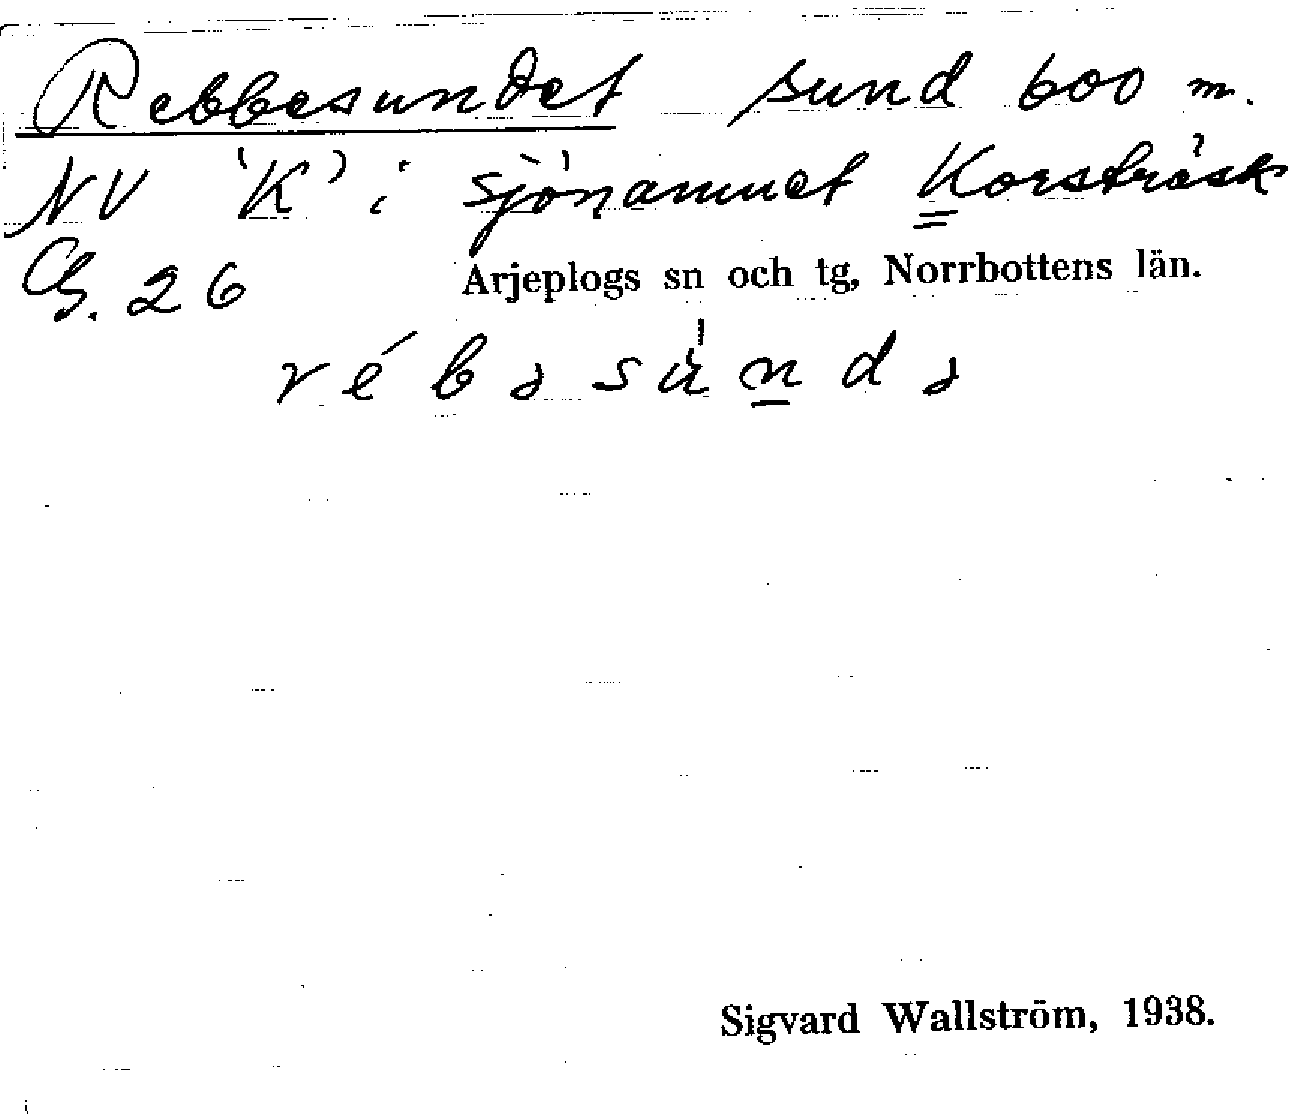 Rebbesundet sund 600 m.
NV 'K' i sjönamnet Korsträsk
G. 26
Arjeplogs sn och tg, Norrbottens län.
rébəsùndə
Sigvard Wallström, 1938.